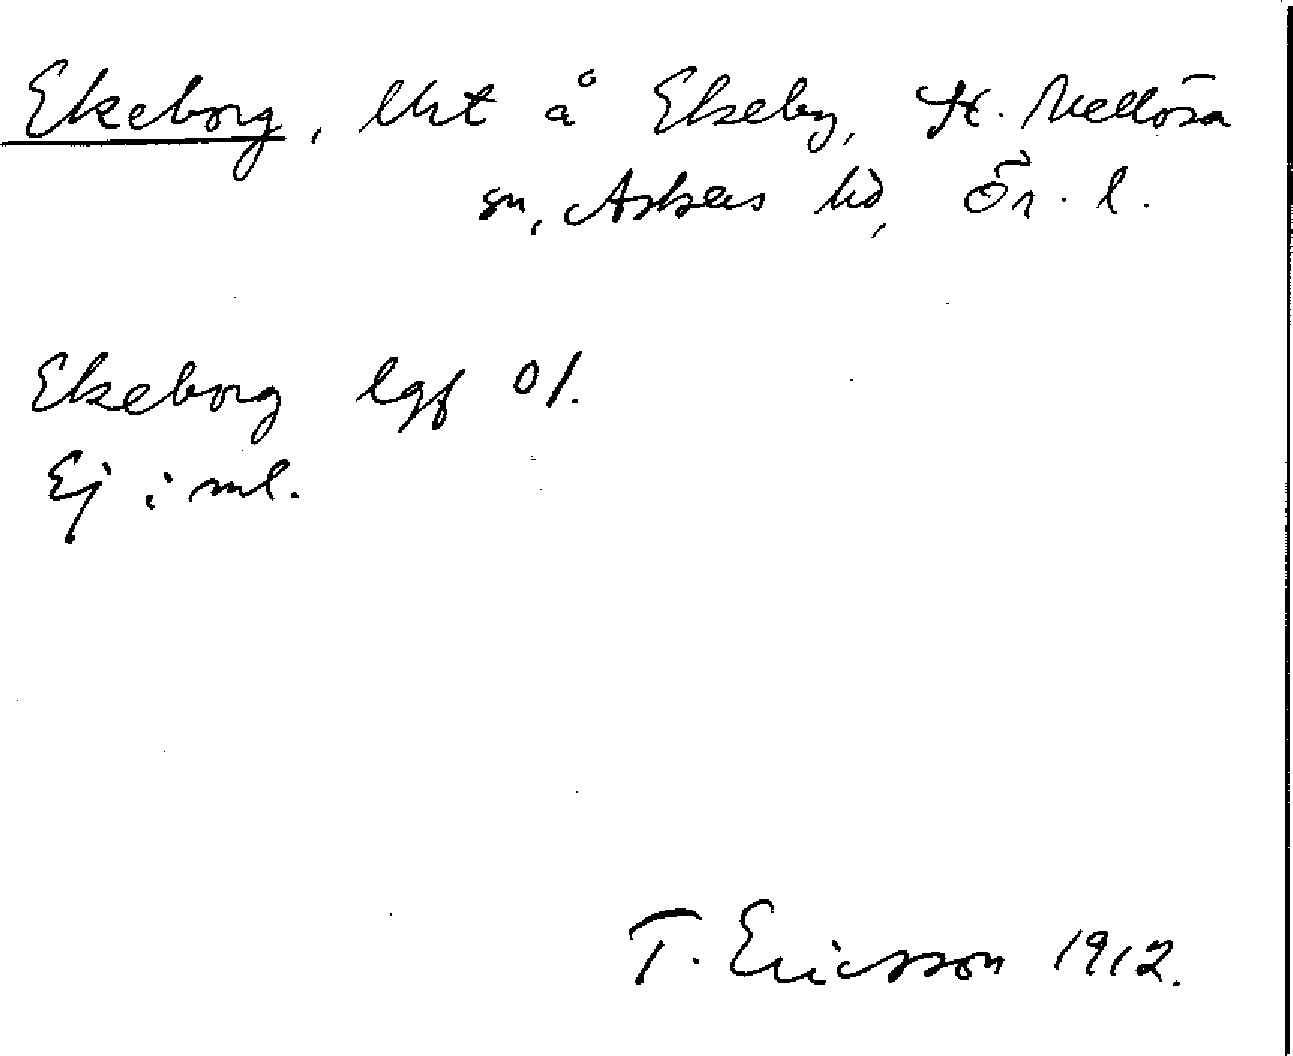 Ekeborg, lht å Ekeby, St. Mellösa
sn, Askers hd, Ör. l.
Ekeborg lgf 01.
Ej i ml.
T. Ericsson 1912.